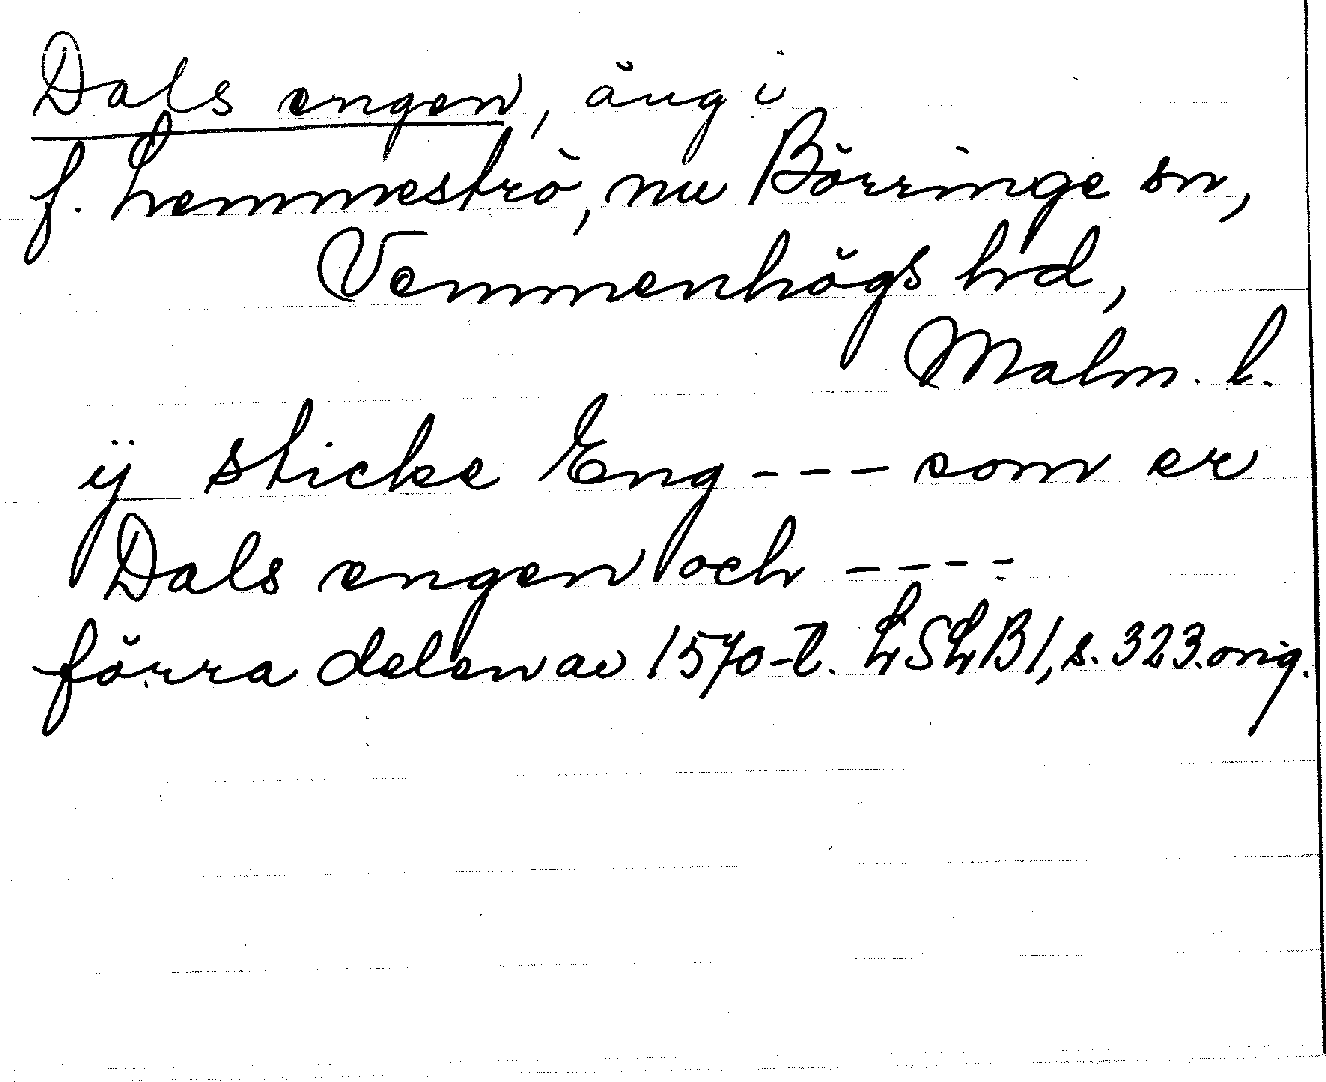 Dals engen, äng i
f. Lemmeströ, nu Börringe sn,
Vemmenhögs hd,
Malm. l.
ÿ sticke Eng --- som er
Dals engen och ----
förra delen av 1570-t. LSLB1, s. 323. orig.